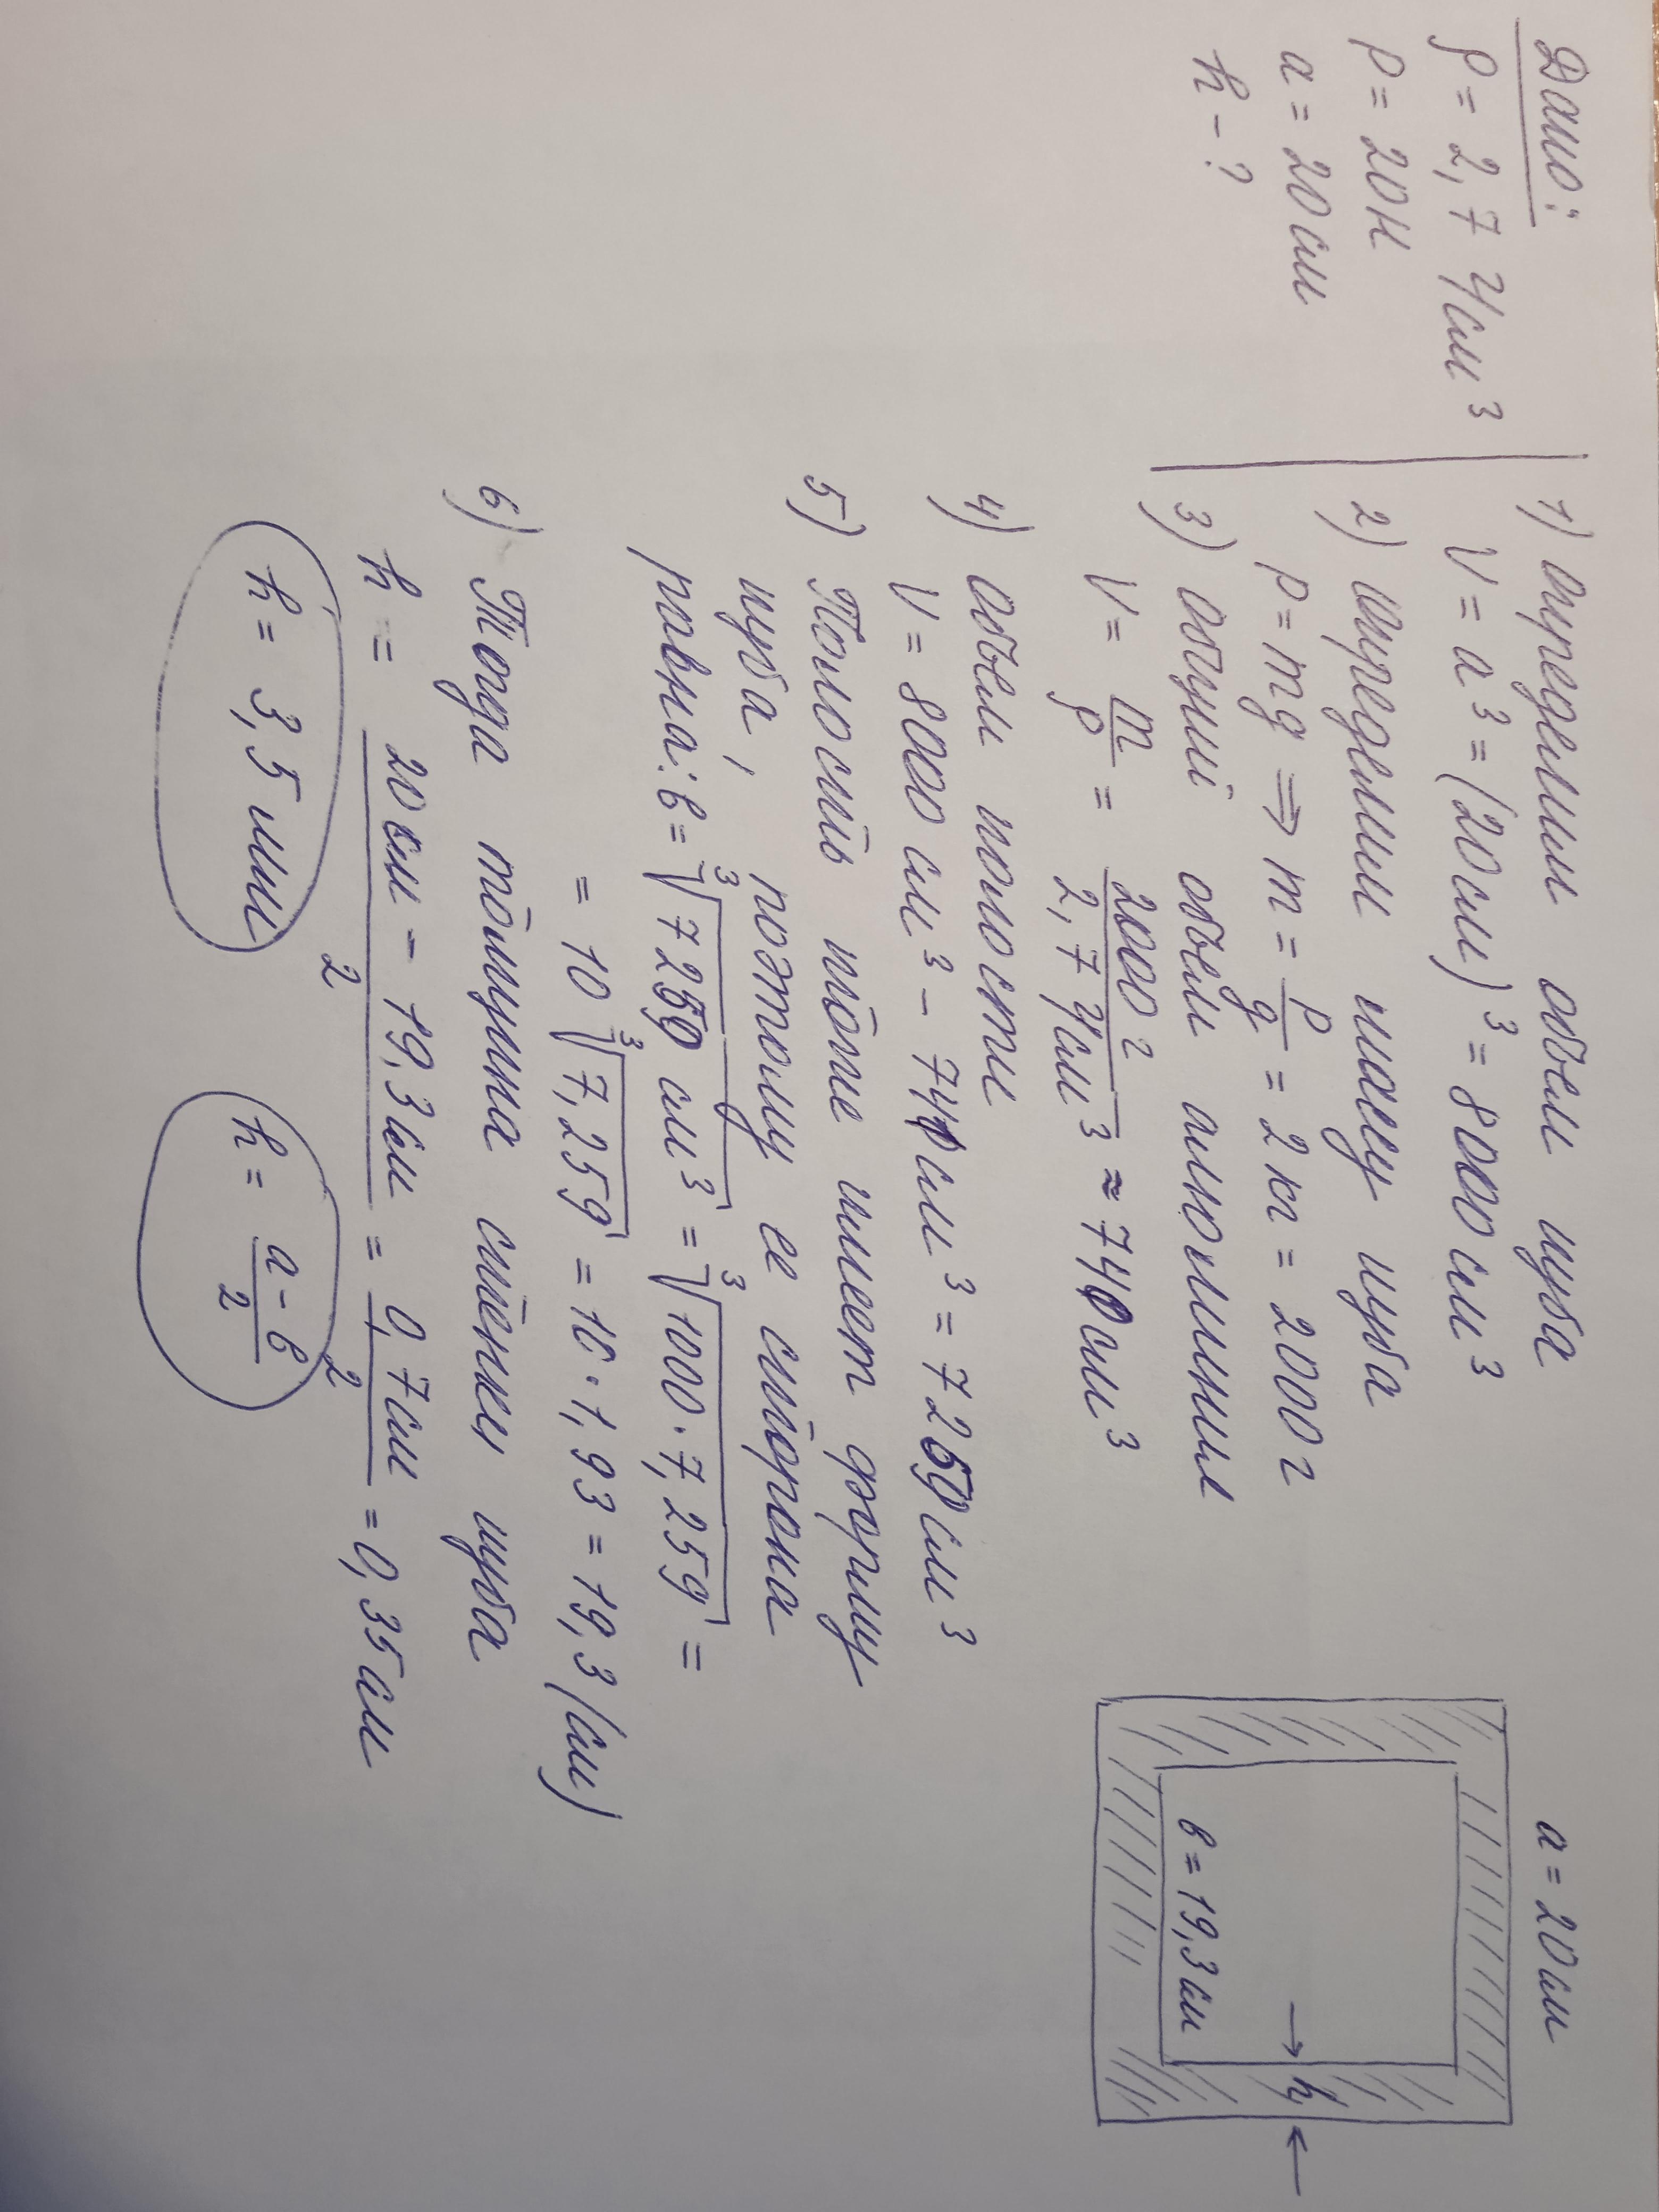 Дано:
ρ = 2,7 г/см³
P = 20 Н
a = 20 см
h - ?
1) определим объем куба
V = a³ = (20 см)³ = 8000 см³
2) определим массу куба
P = mg ⇒ m = P/g = 2 кг = 2000 г
3) общий объем алюминия
V = m/ρ = 2000 г / 2,7 г/см³ ≈ 740 см³
4) объем полости
V = 8000 см³ - 740 см³ = 7250 см³
5) Полость тоже имеет форму
куба, поэтому ее сторона
равна: b = ∛7250 см³ = ∛1000·7,259 =
= 10 ∛7,259 = 10·1,93 = 19,3 (см)
6) Тогда толщина стенки куба
h = (20 см - 19,3 см)/2 = 0,7 см/2 = 0,35 см
h = 3,5 мм
h = (a - b)/2
a = 20 см
b = 19,3 см
h